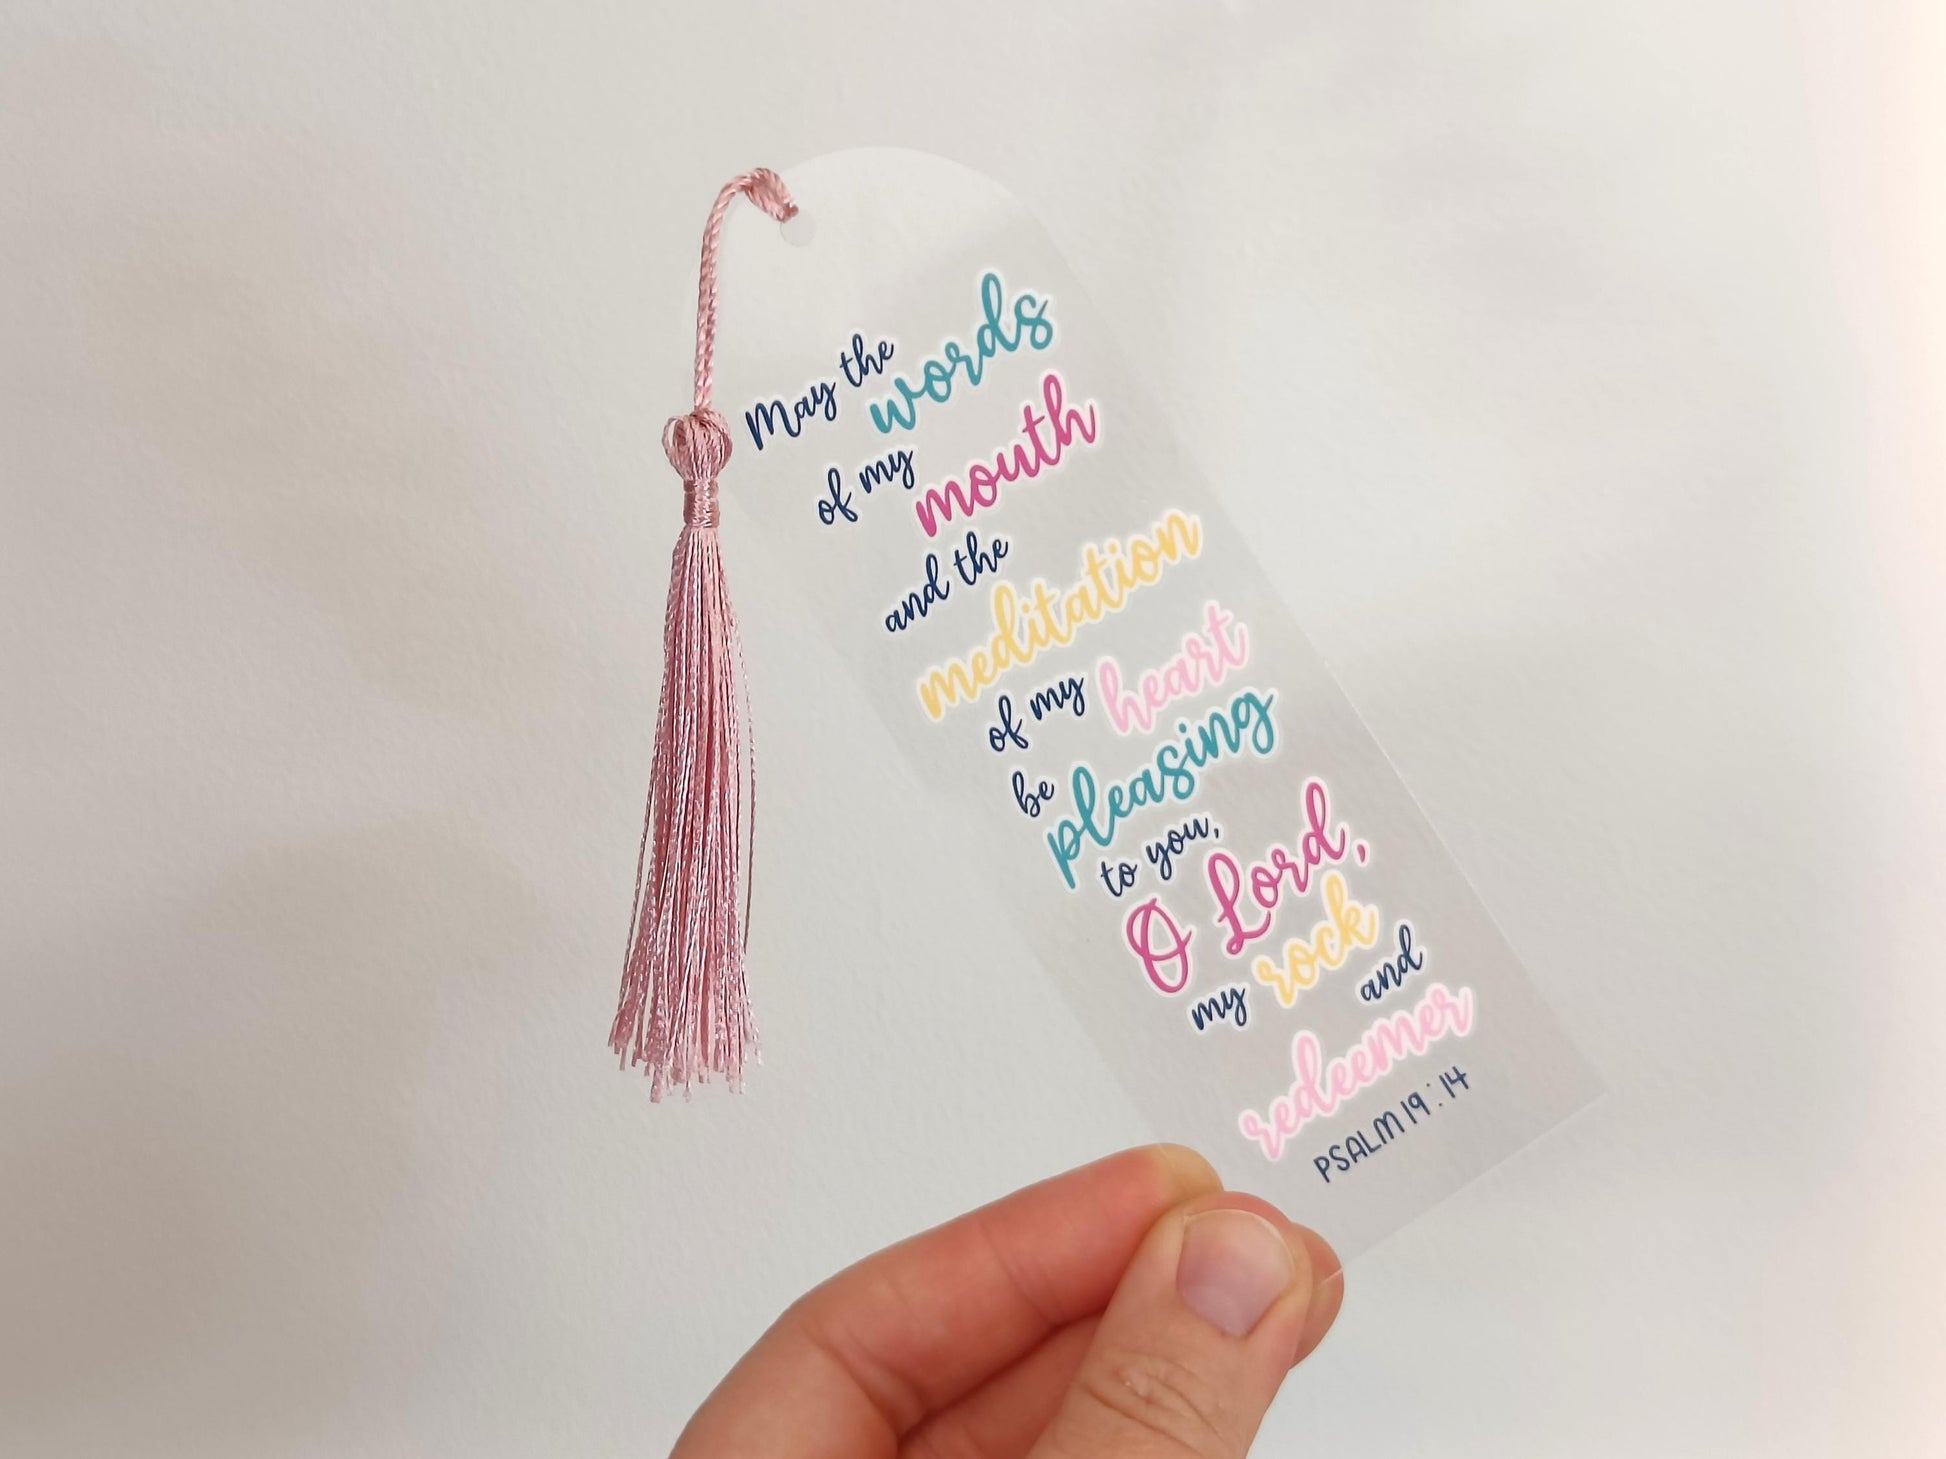 May the words
of my mouth
and the
meditation
of my heart
be pleasing
to you,
O Lord,
my rock and
redeemer
PSALM 19:14